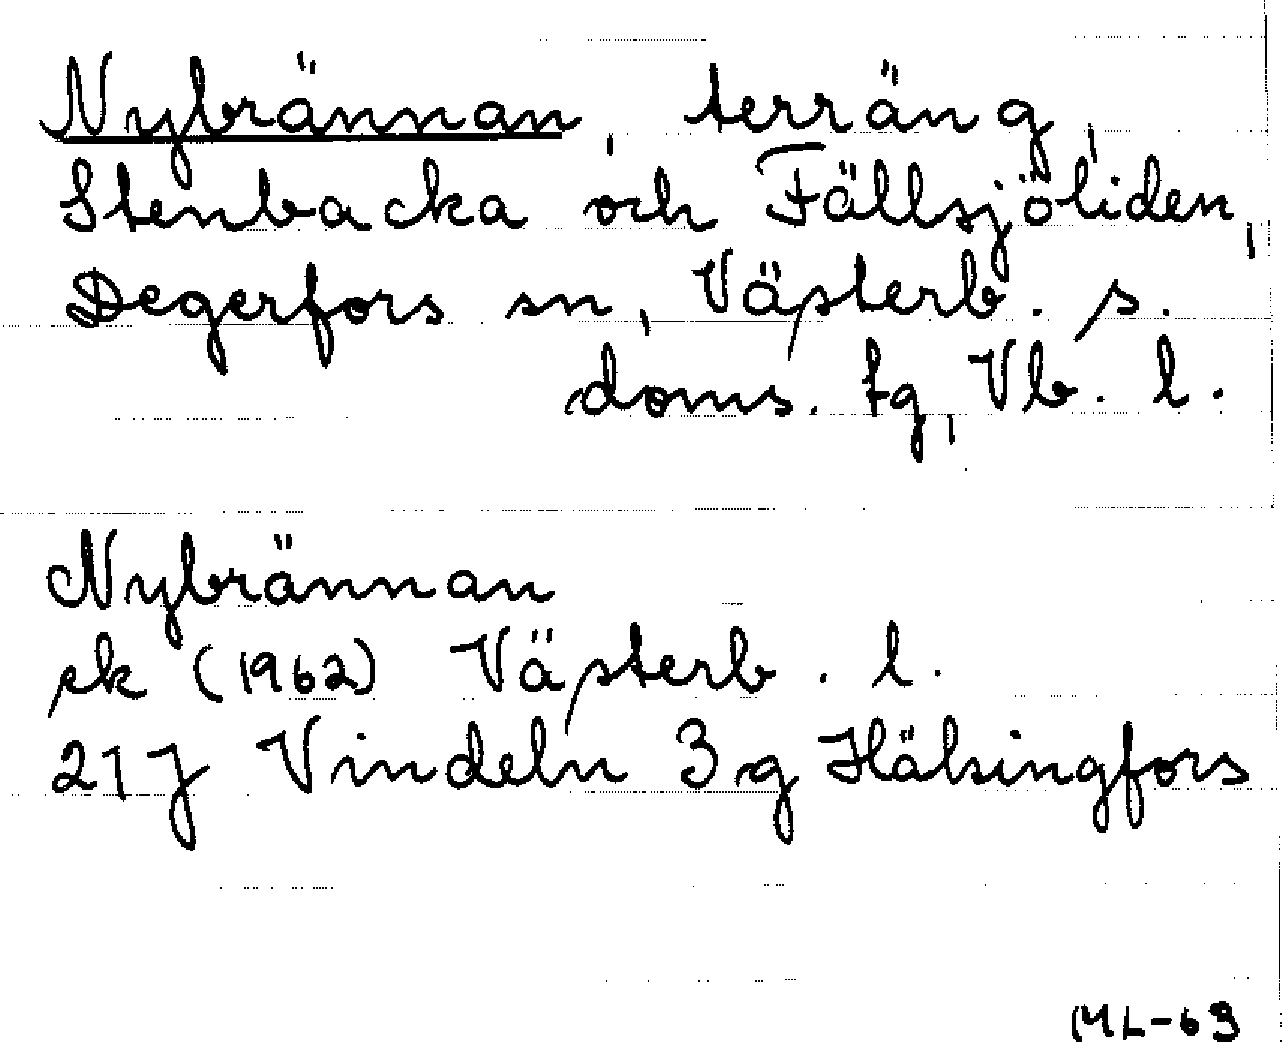 Nybrännan, terräng,
Stenbacka och Fällsjöliden,
Degerfors sn, Västerb. s.
doms. tg, Vb. l.
Nybrännan
ek (1962) Västerb. l.
21J Vindeln 3 g Hälsingfors
ML-69